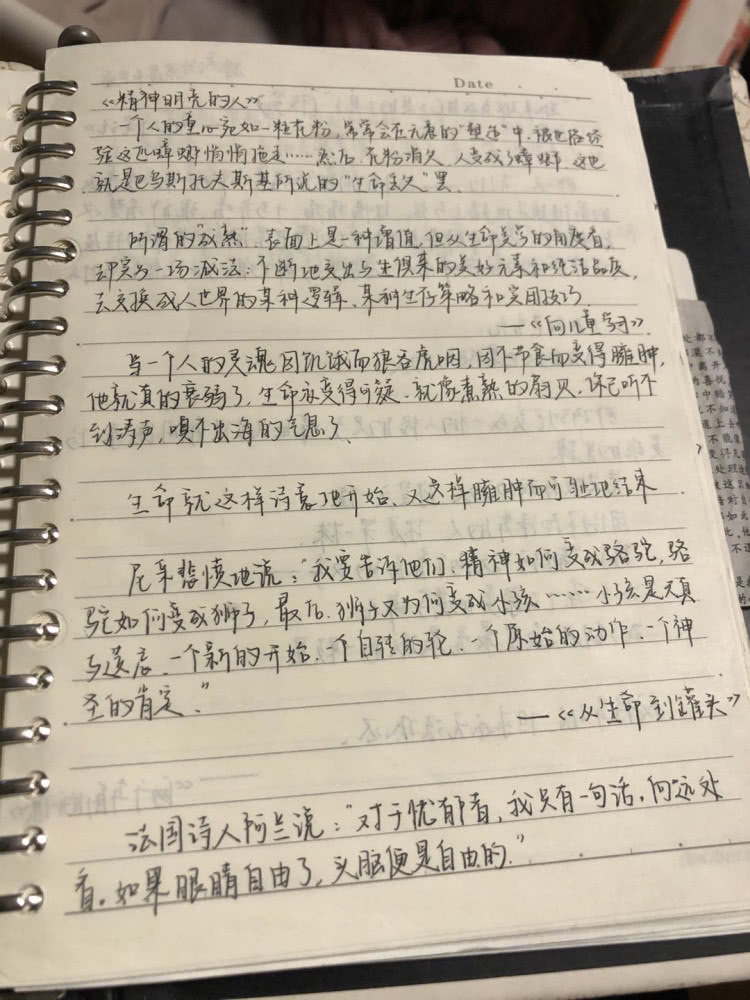 Date
《精神明亮的人》
一个人的童心宛如一粒花粉，常常会在无意的“塑造”中，被世俗经
验这匹蟑螂悄悄拖走……然后，花粉消失，人变成了蟑螂。这也
就是巴乌斯托夫斯基所说的“生命丢失”罢
所谓的“成熟”，表面上是一种增值，但从生命美学的角度看，
却实为一场减法：不断地交出与生俱来的美好元素和纯洁品质，
去交换成人世界的某种逻辑、某种生存策略和实用技巧。
——《向儿童学习》
当一个人的灵魂因饥饿而狼吞虎咽，因不节食而变得臃肿，
他就真的衰弱了，生命亦变得可疑、就像煮熟的扇贝，你已听不
到涛声，嗅不出海的气息了
生命就这样诗意地开始、又这样臃肿而可耻地结束
尼采悲愤地说：“我要告诉他们，精神如何变成骆驼，骆
驼如何变成狮子，最后，狮子又为何变成小孩……小孩是天真
与遗忘、一个新的开始、一个自转的轮、一个原始的动作、一个神
圣的肯定。”
——《从生命到罐头》
法国诗人阿兰说：“对于忧郁者，我只有一句话，向远处
看。如果眼睛自由了，头脑便是自由的。”